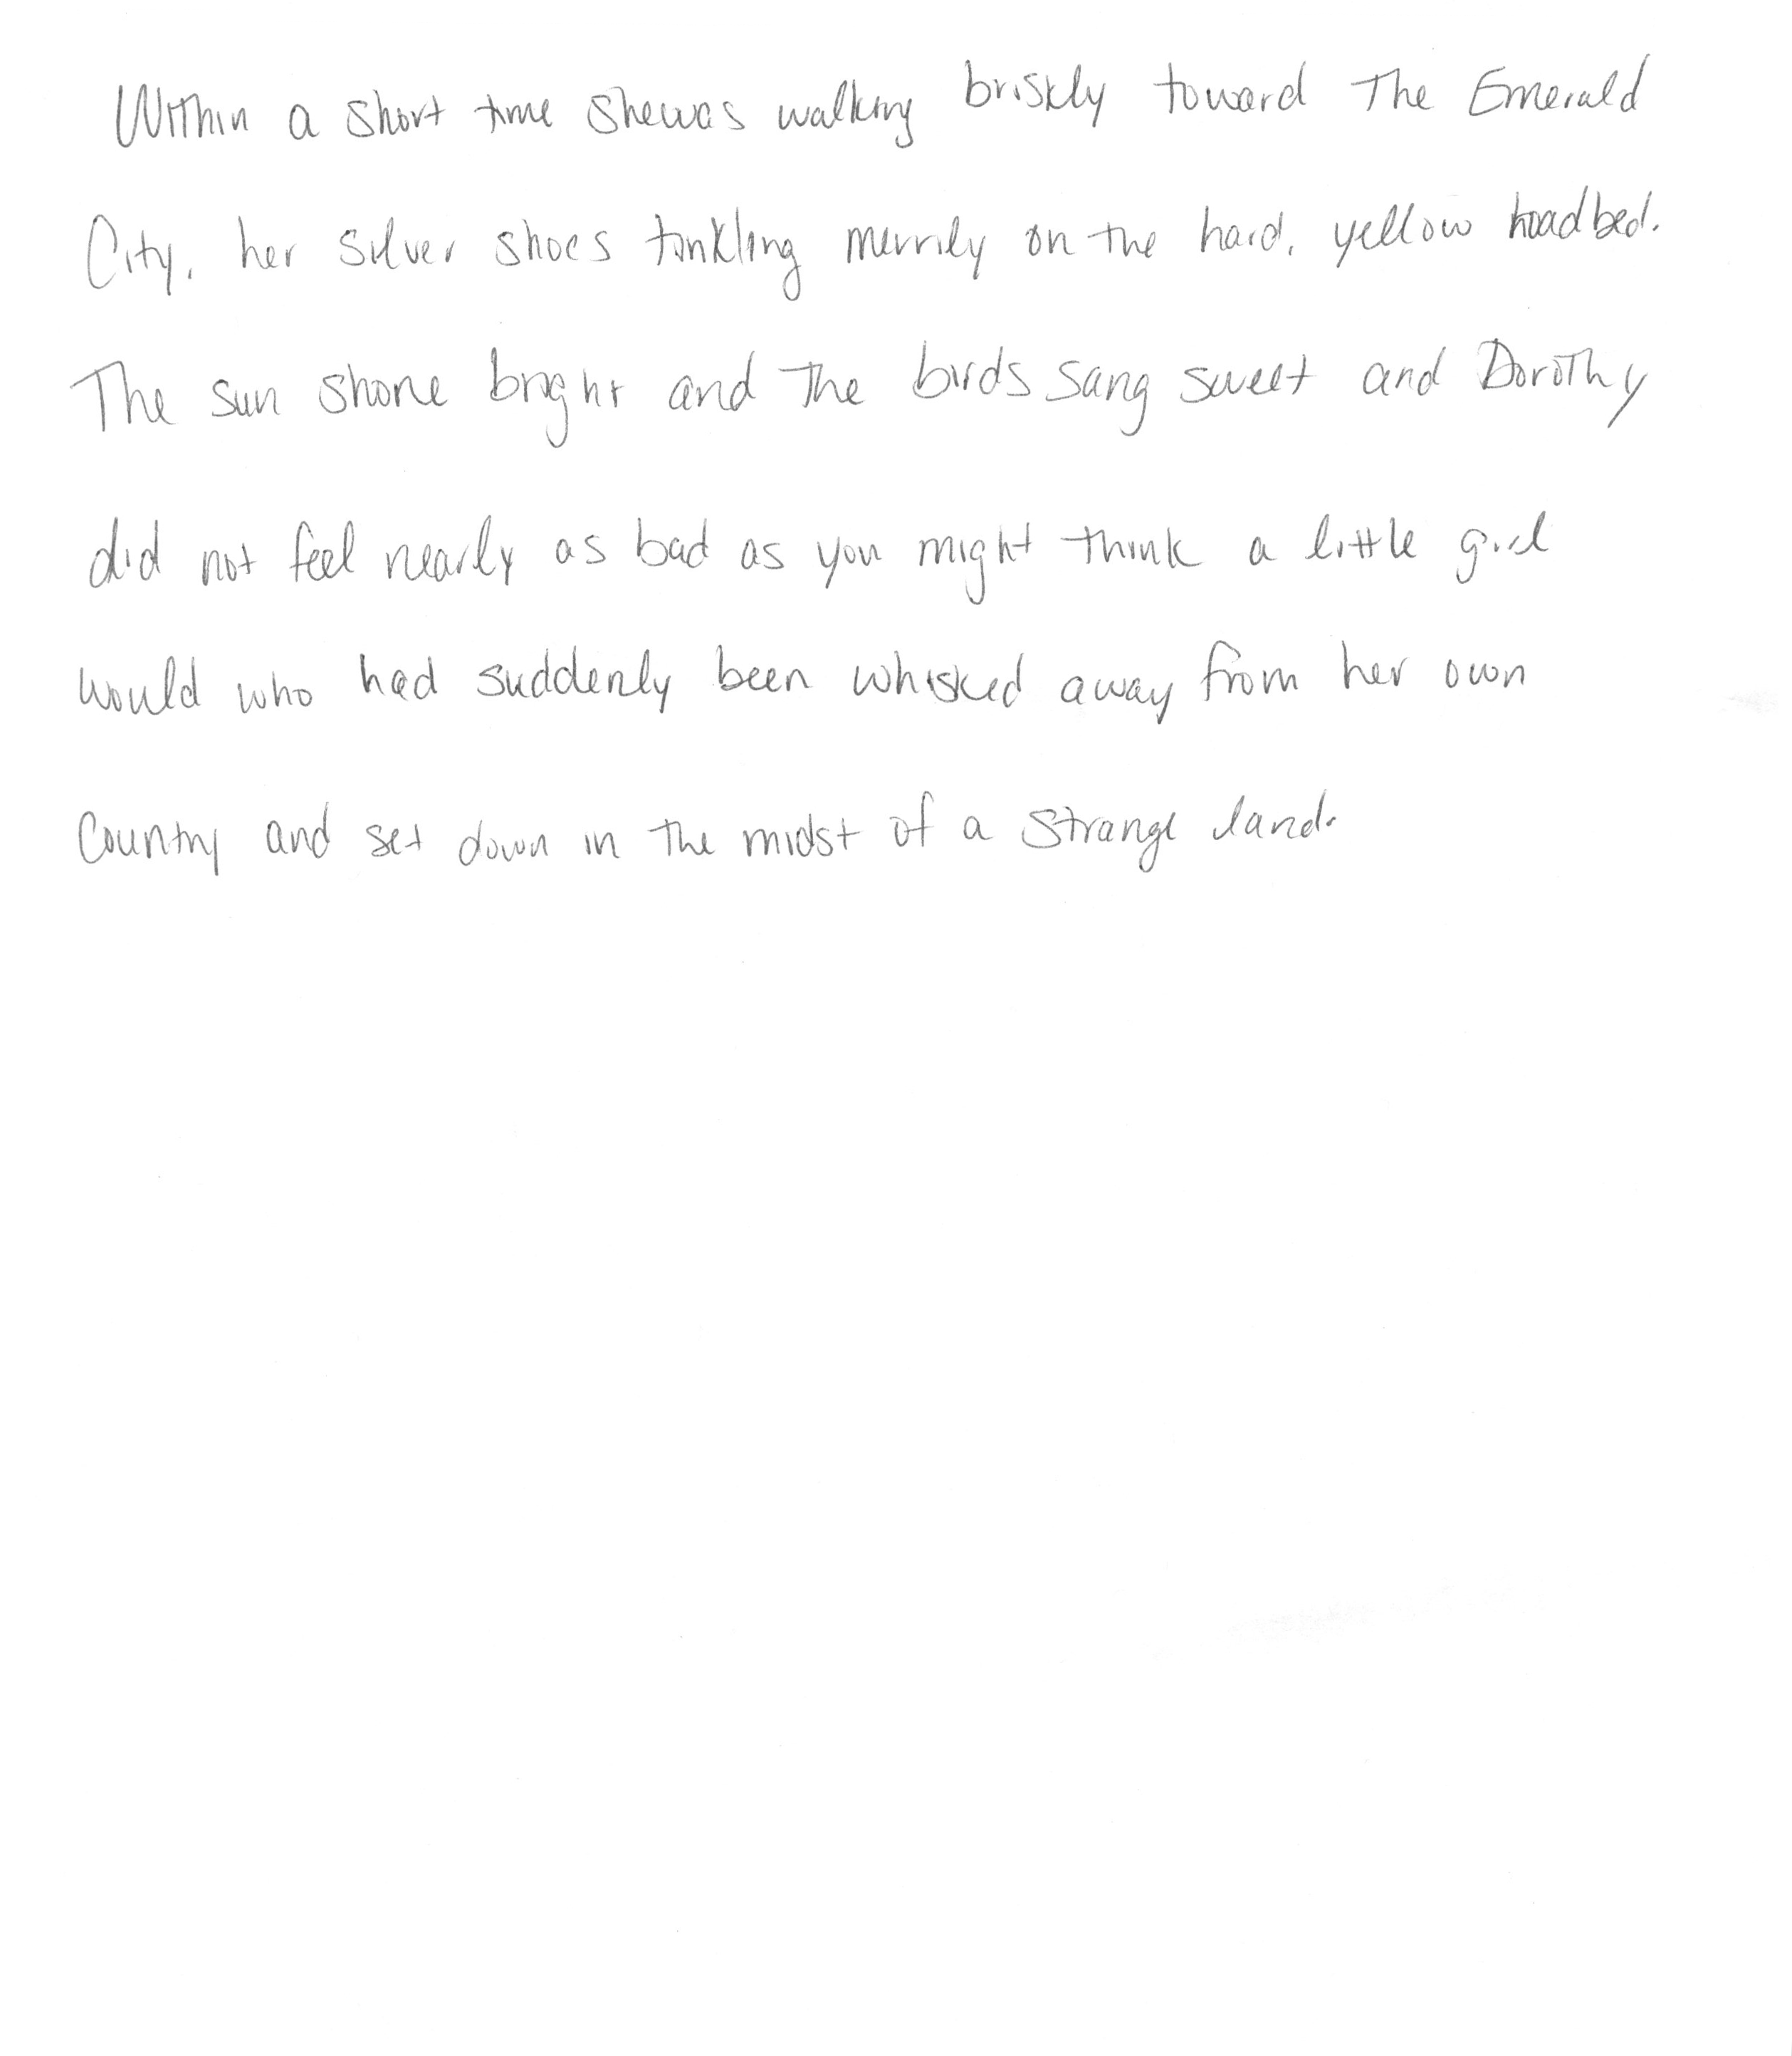 Within a short time she was walking briskly toward the Emerald
City, her silver shoes tinkling merrily on the hard, yellow roadbed.
The sun shone bright and the birds sang sweet and Dorothy
did not feel nearly as bad as you might think a little girl
would who had suddenly been whisked away from her own
country and set down in the midst of a strange land.